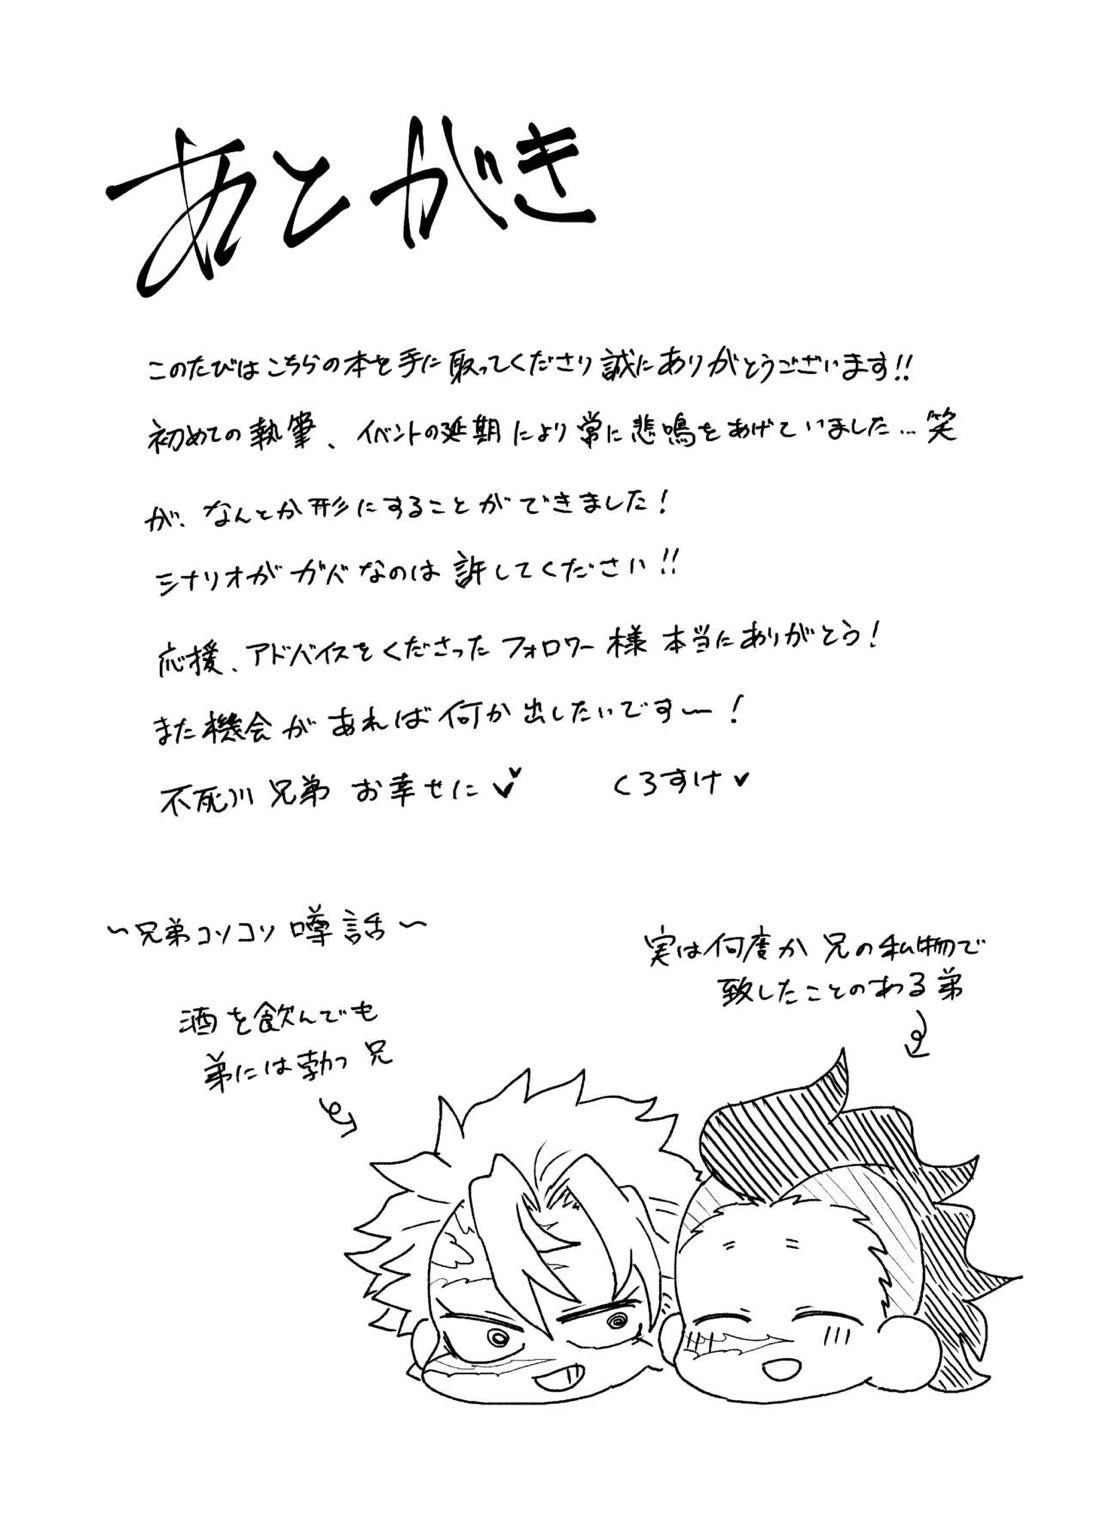 あとがき
このたびはこちらの本を手に取ってくださり誠にありがとうございます!!
初めての執筆、イベントの延期により常に悲鳴をあげていました…笑
が、なんとか形にすることができました!
シナリオがガバなのは許してください!!
応援、アドバイスをくださったフォロワー様本当にありがとう!
また機会があれば何か出したいですー!
不死川兄弟お幸せに♥♥ くろすけ♥
~兄弟コソコソ噂話~
酒を飲んでも
弟には勃つ兄
実は何度か兄の私物で
致したことのある弟